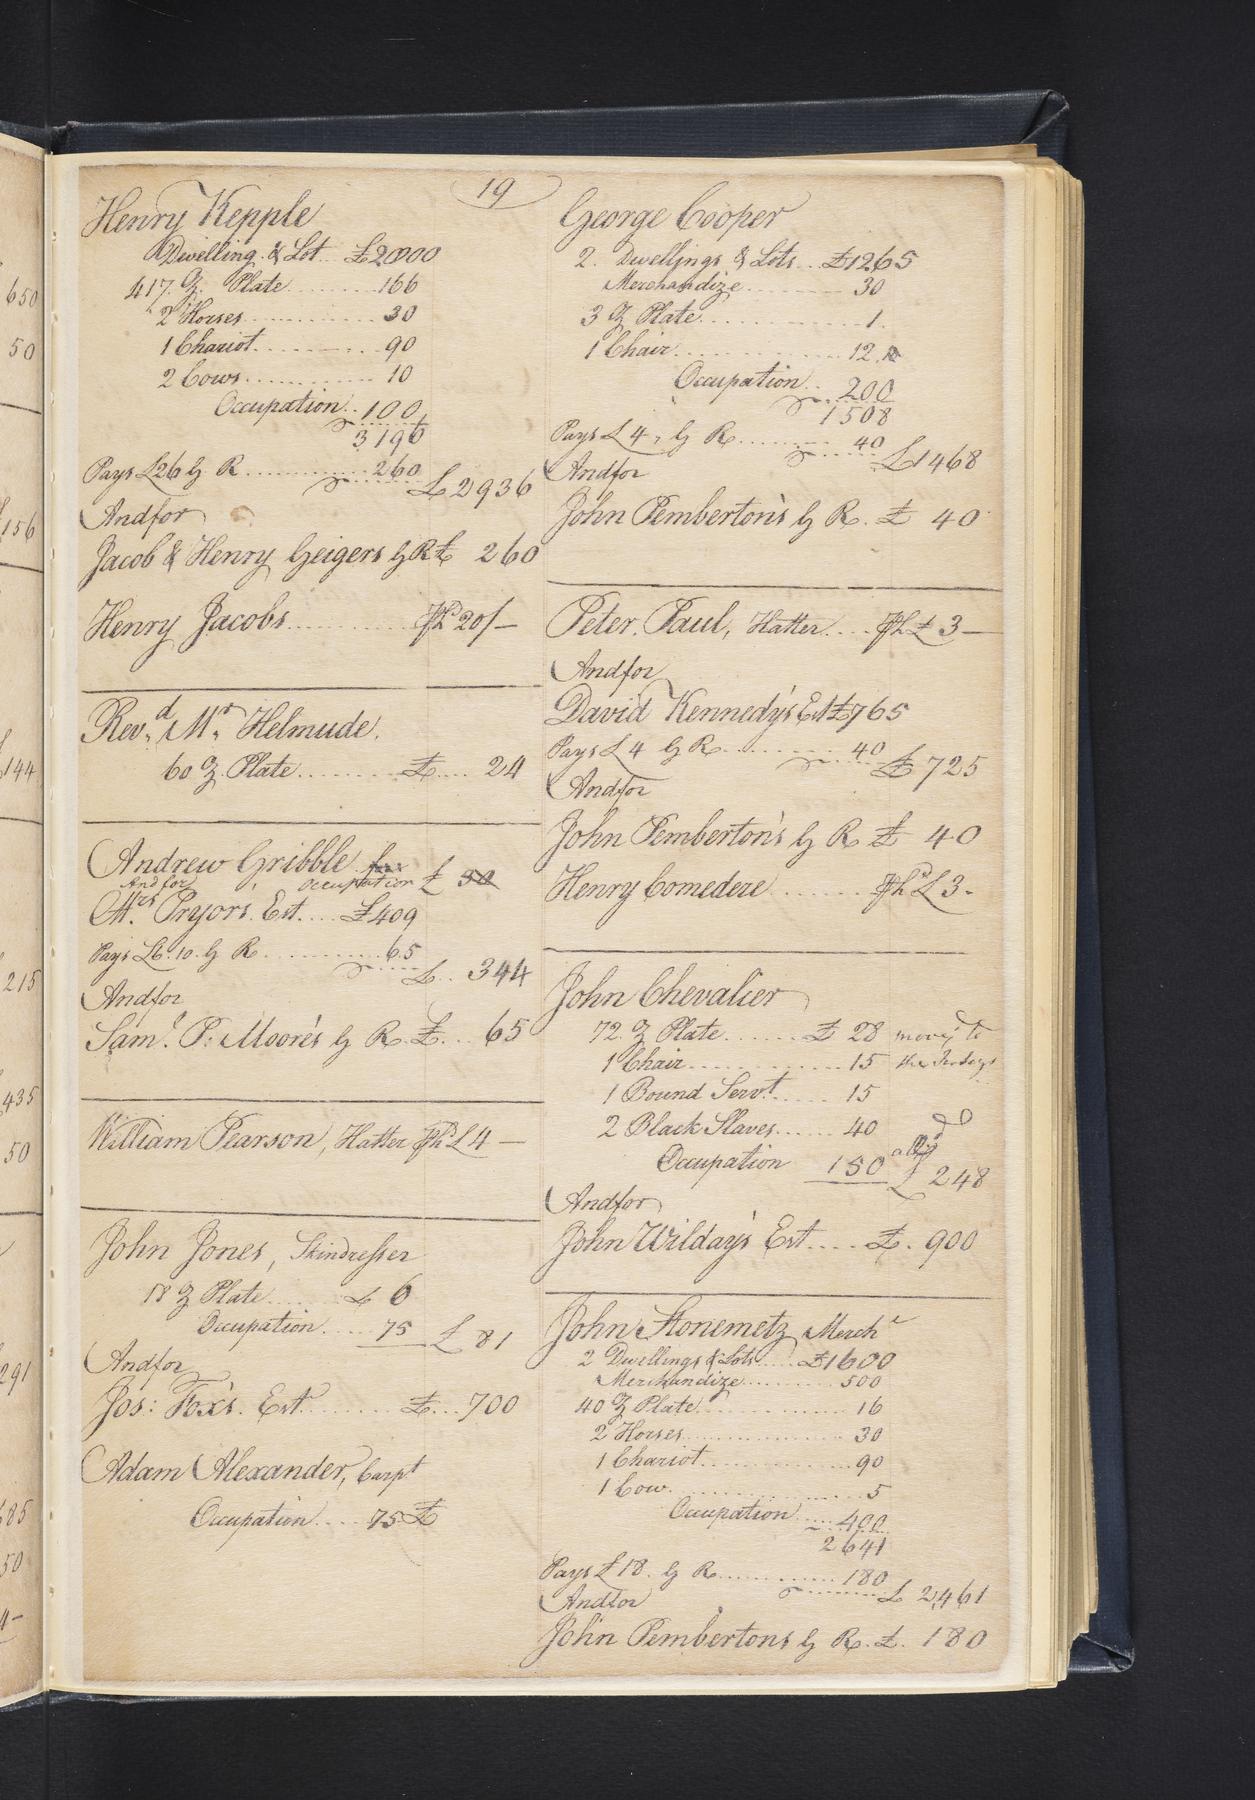 19
Henry Kepple
Dwelling & Lot £2000
417 oz. Plate 166
2 Horses 30
1 Chariot 90
2 Cows 10
Occupation 100
3196
Pays £26 G R 260
£2936
And for
Jacob & Henry Geigers G R £ 260
Henry Jacobs Ph 20/—
Revd. Mr. Helmude.
60 oz. Plate £ 24
Andrew Gribble for
And for Occupation £ 50
Mrs. Pryors Est. £409
Pays £6.10. G R 65
£ 344
And for
Saml. P. Moore's G R £ 65
William Pearson, Hatter Phd £4 —
John Jones, Skindresser
18 oz Plate £ 6
Occupation 75 £ 81
And for
Jos: Fox's Est £ 700
Adam Alexander, Carpt
Occupation 75 £
George Cooper
2. Dwellings & Lots £1265
Merchandize 30
3 oz Plate 1.
1 Chair 12
Occupation 200
1508
Pays £4, G R 40
£1468
And for
John Pemberton's G R. £ 40
Peter Paul, Hatter Ph £ 3 —
And for
David Kennedy's Est £765
Pays £4 G R 40
£ 725
And for
John Pemberton's G R £ 40
Henry Comedere Phd £3-
John Chevalier
72. oz Plate £ 28 mov'd to
1 Chair 15 the
1 Bound Servt. 15
2 Black Slaves 40
Occupation 150 £ 248
And for
John Wilday's Est £. 900
John Stonemetz Mercht
2 Dwellings & Lots £1600
Merchandize 500
40 oz Plate 16
2 Horses 30
1 Chariot 90
1 Cow 5
Occupation 400
2641
Pays £18. G R 180
£ 2,461
And for
John Pembertons G R. £. 180